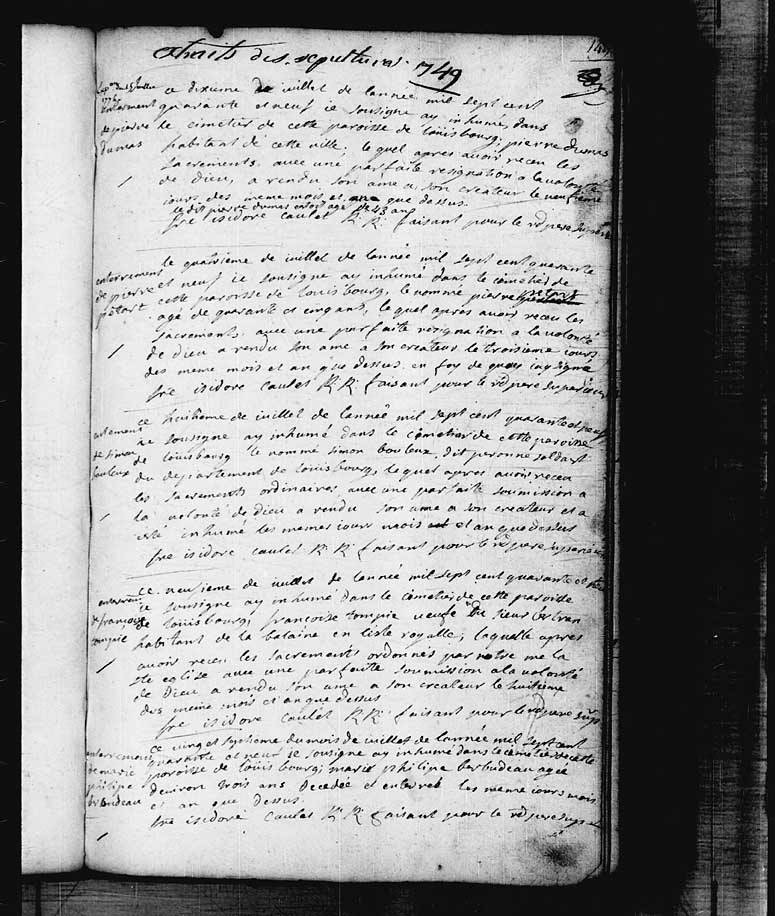 extraits des sepultures 1749
enterrement
de pierre
dumas
ce dixieme de iuillet de lannee mil sept cent
quarante et neuf ie sousigne ay inhumé dans
le cimetier de cette paroisse de loüisbourg, pierre dumas
habitant de cette ville, le quel apres avoir receu les
sacrements, avec une parfaite resignation a la volonté
de Dieu, a rendu son ame a son createur le neufieme
iours des meme mois et an que dessus.
le dit pierre dumas estoit agé de 43 ans
fre isidore caulet R: R: faisant pour le rd pere superieur
enterrement
de pierre
petart
le quatrieme de iuillet de lannée mil sept cent quarante
et neuf ie sousigne ay inhumé dans le cimetier de
cette paroisse de louisbourg, le nommé pierre petart
agé de quarante et cinq ans, le quel apres avoir receu les
sacrements, avec une parfaite resignation a la volonté
de Dieu a rendu son ame a son createur le troisieme iours
des meme mois et an que dessus. en foy de quoy iay signé
fre isidore caulet R: R: faisant pour le rd pere superieur
enterrement
de simon
bouleux
ce huitieme de iuillet de lanneé mil sept cent quarante et neuf
ie sousigne ay inhumé dans le cimetier de cette paroisse
de louisbourg le nommé simon bouleux, dit peronne soldat
du departement de louisbourg, le quel apres avoir receu
les sacrements ordinaires avec une parfaite soumission a
la volonté de Dieu a rendu son ame a son createur et a
esté inhumé les memes iours mois et an que dessus
fre isidore caulet R: R: faisant pour le rd pere superieur
enterrement
de françoise
tompié
ce neufieme de iuillet de lanneé mil sept cent quarante et neuf
ie sousigne ay inhumé dans le cimetier de cette paroisse
de loüisbourg, françoise tompie veufe du sieur
habitant de la balaine en liste royalle, laquelle apres
avoir receu les sacrements ordonnés par notre me la
ste eglise avec une parfaite soumission a la volonté
de Dieu a rendu son ame a son createur le huitieme
des meme mois et an que dessus
fre isidore caulet R: R: faisant pour le rd pere supr
enterrement
de marie
philipe
berbudeau
ce vingt septieme du mois de iuillet de lanneé mil sept cent
quarante et neuf ie sousigne ay inhumé dans le cimetier de cette
paroisse de loüisbourg, marie philipe berbudeau ageé
denviron trois ans Decedeé et enterreé les meme iours mois
et an que dessus
fre isidore caulet R: R: faisant pour le rd pere supr